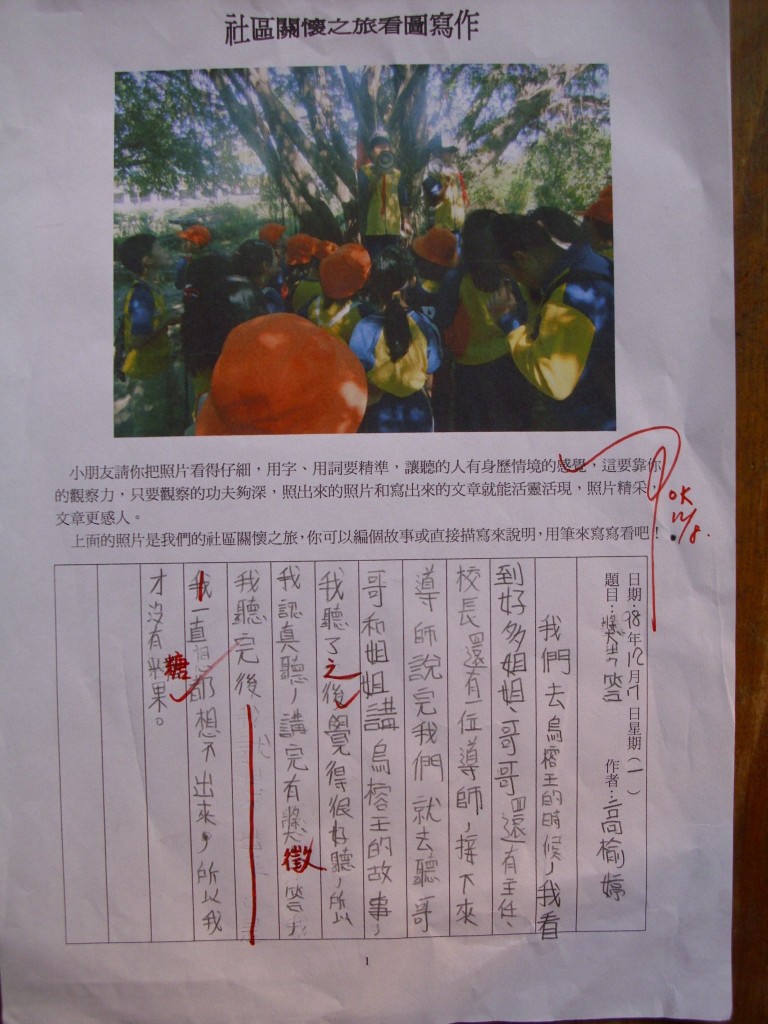 社區關懷之旅看圖寫作
小朋友請你把照片看得仔細，用字、用詞要精準，讓聽的人有身歷情境的感覺，這要靠你
的觀察力，只要觀察的功夫夠深，照出來的照片和寫出來的文章就能活靈活現，照片精采，
文章更感人。
上面的照片是我們的社區關懷之旅，你可以編個故事或直接描寫來說明，用筆來寫寫看吧！
OK
12/8.
日期：98年12月7日星期（一）
題目：獎答 作者：高榆婷
我們去烏榕王的時候，我看
到好多姐姐、哥哥還有主任、
校長還有一位導師，接下來
導師說完我們就去聽哥
哥和姐姐講烏榕王的故事，
我聽了之後覺得很好聽，所以
我認真聽，講完有獎徵答
我聽完後
我一直都想不出來，所以我
才沒有糖果。
1